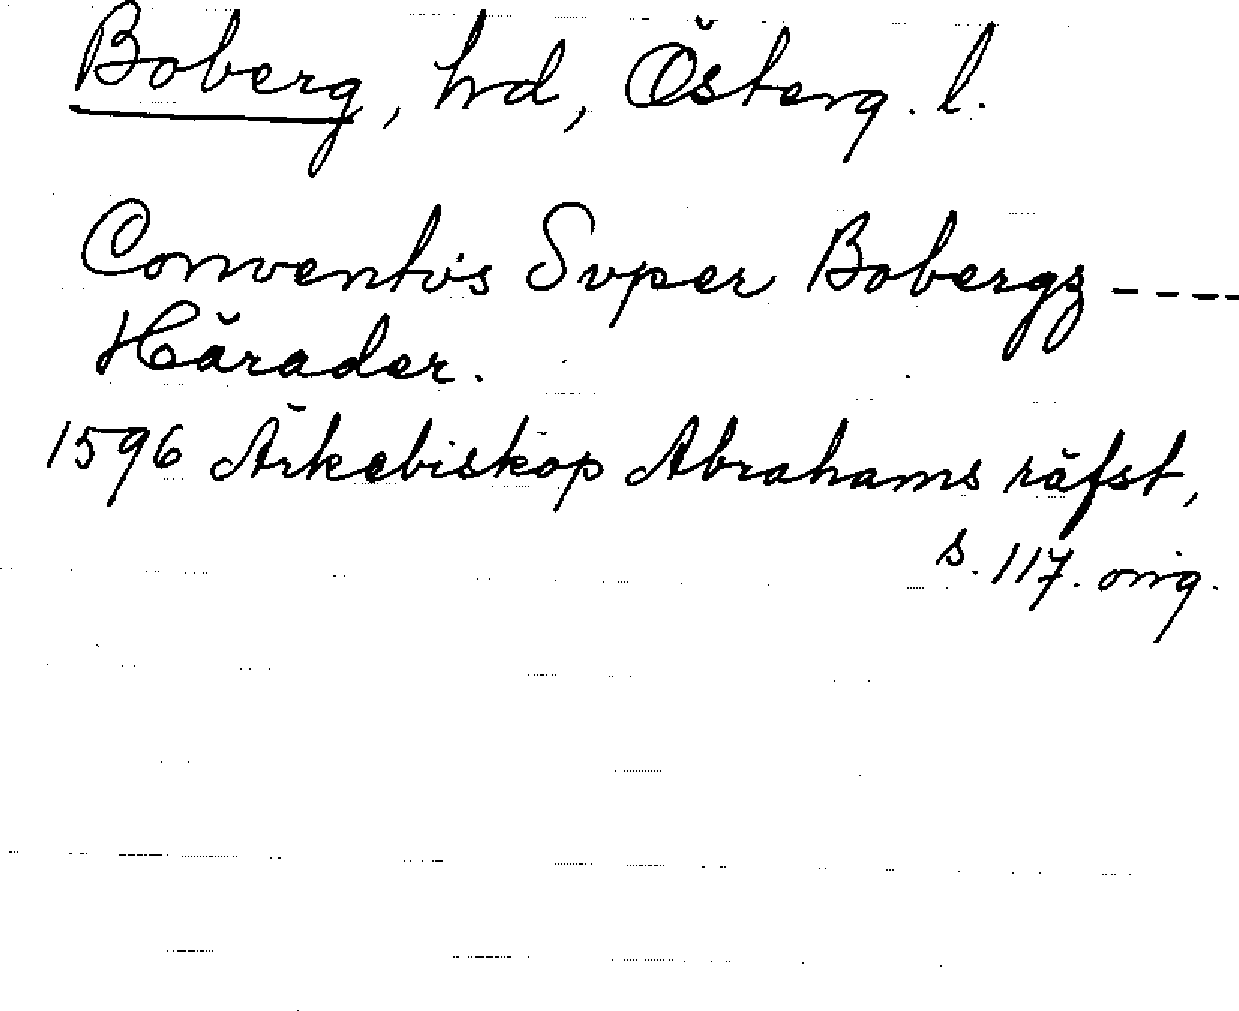 Boberg, hd, Österg. l.
Conventvs Svper Bobergz ----
Härader.
1596 Ärkebiskop Abrahams räfst,
s. 117. orig.